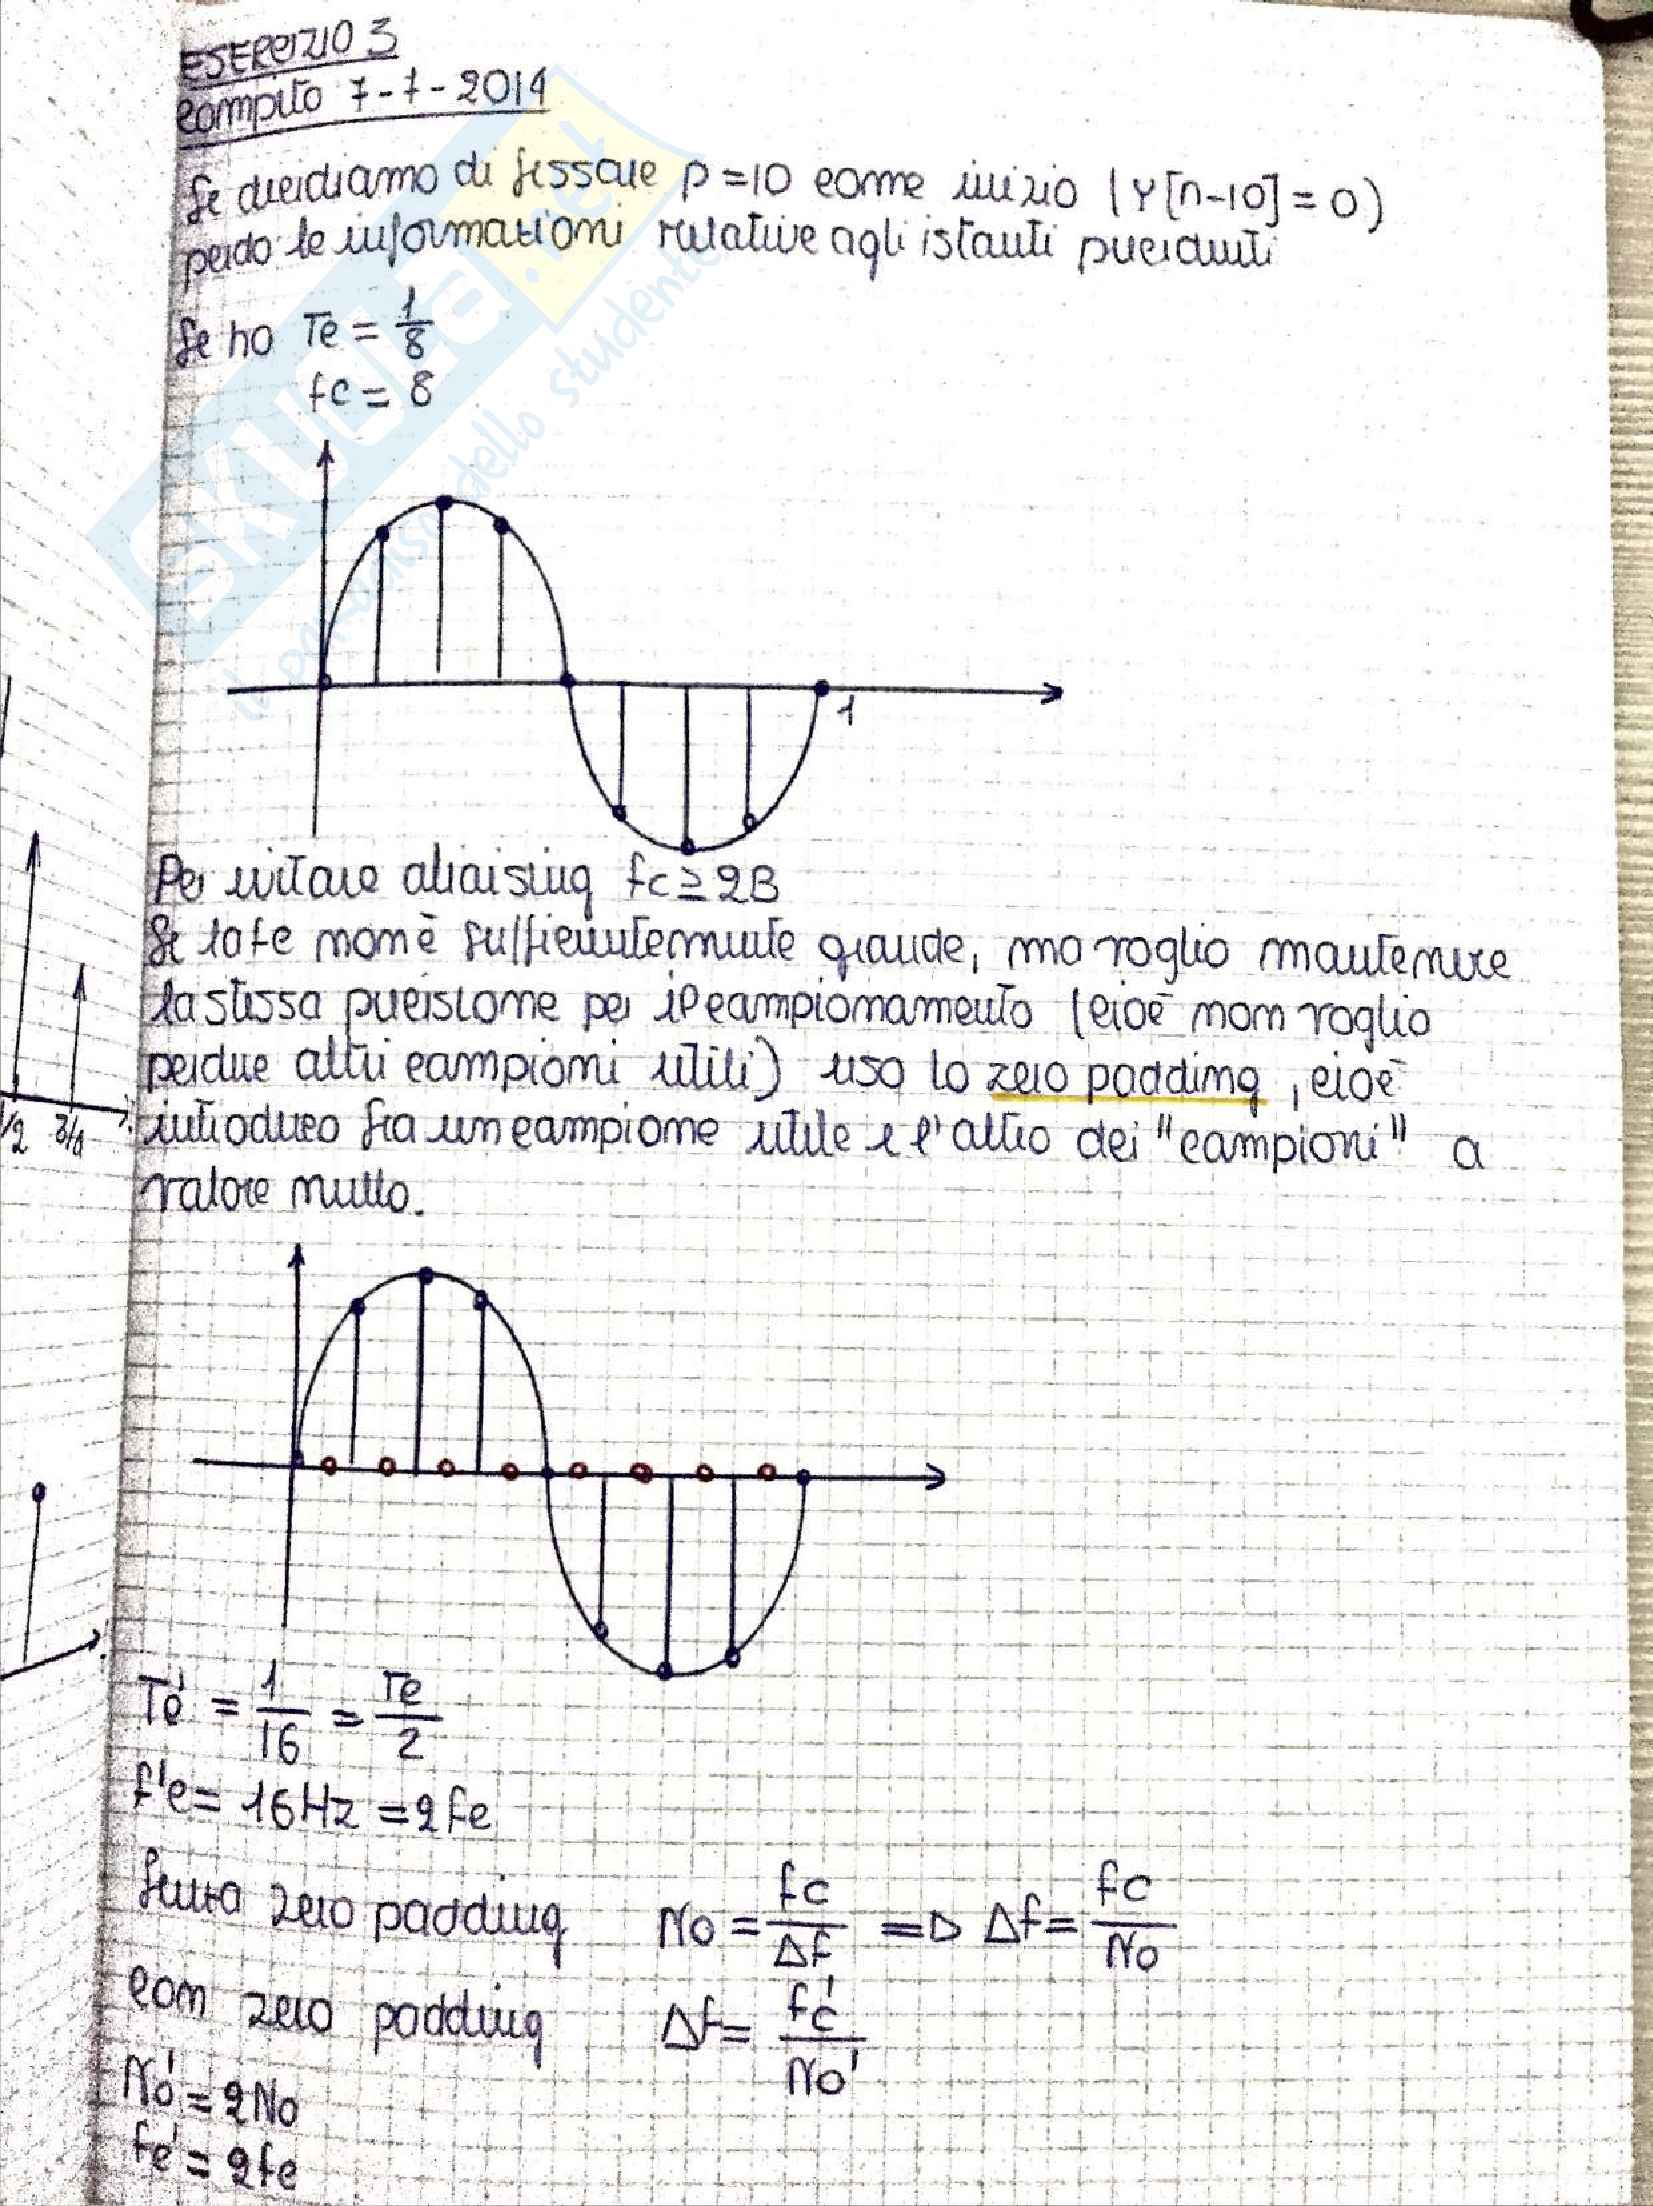 ESERCIZIO 3
compito 7-7-2014
Se decidiamo di fissare p=10 come inizio (Y[n-10]=0)
perdo le informazioni relative agli istanti precedenti
Se ho Tc = 1/8
fc = 8
1
Per evitare aliaising fc ≥ 2B
Se la fc non è sufficientemente grande, ma voglio mantenere
la stessa precisione per il campionamento (cioè non voglio
perdere altri campioni utili) uso lo zero padding, cioè
introduco fra un campione utile e l'altro dei "campioni" a
valore nullo.
1/2 3/4
Tc' = 1/16 = Tc/2
f'c = 16Hz = 2fc
Senza zero padding No = fc/Δf => Δf = fc/No
con zero padding Δf = fc'/No'
No' = 2No
fc' = 2fc
SKUOLA.net
il paradiso dello studente